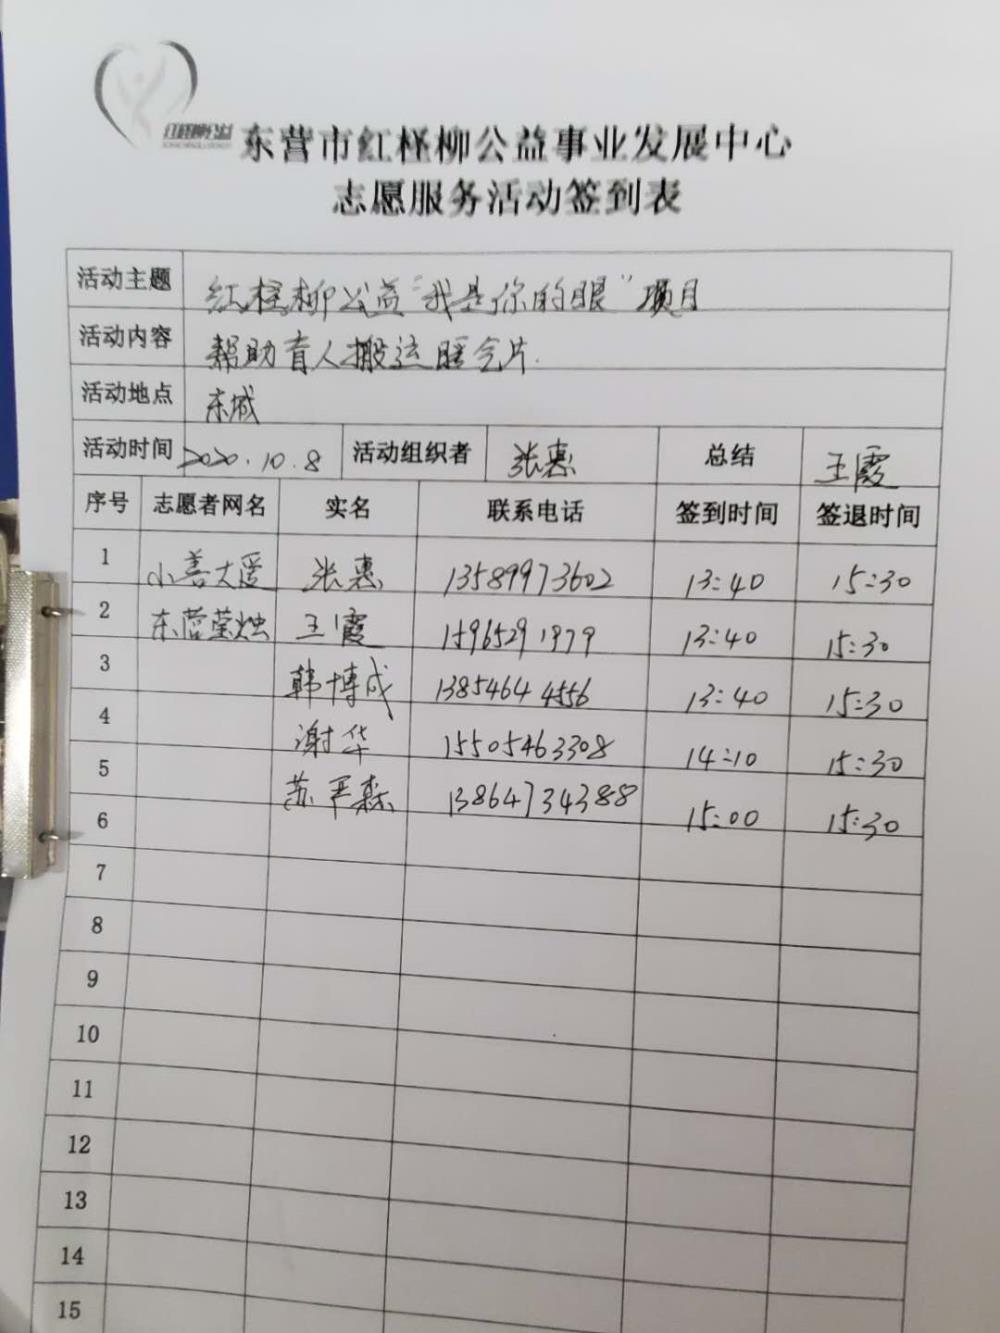 红柽柳公益
东营市红柽柳公益事业发展中心
志愿服务活动签到表
活动主题 红柽柳公益“我是你的眼”项目
活动内容 帮助盲人搬运暖气片.
活动地点 东城
活动时间 2020.10.8 活动组织者 张惠 总结 王霞
序号 志愿者网名 实名 联系电话 签到时间 签退时间
1 小善大爱 张惠 13589973602 13:40 15:30
2 东营莹烛 王霞 15965291979 13:40 15:30
3 韩博成 13854644556 13:40 15:30
4 谢华 15505463308 14:10 15:30
5 苏严森 13864734388 15:00 15:30
6
7
8
9
10
11
12
13
14
15